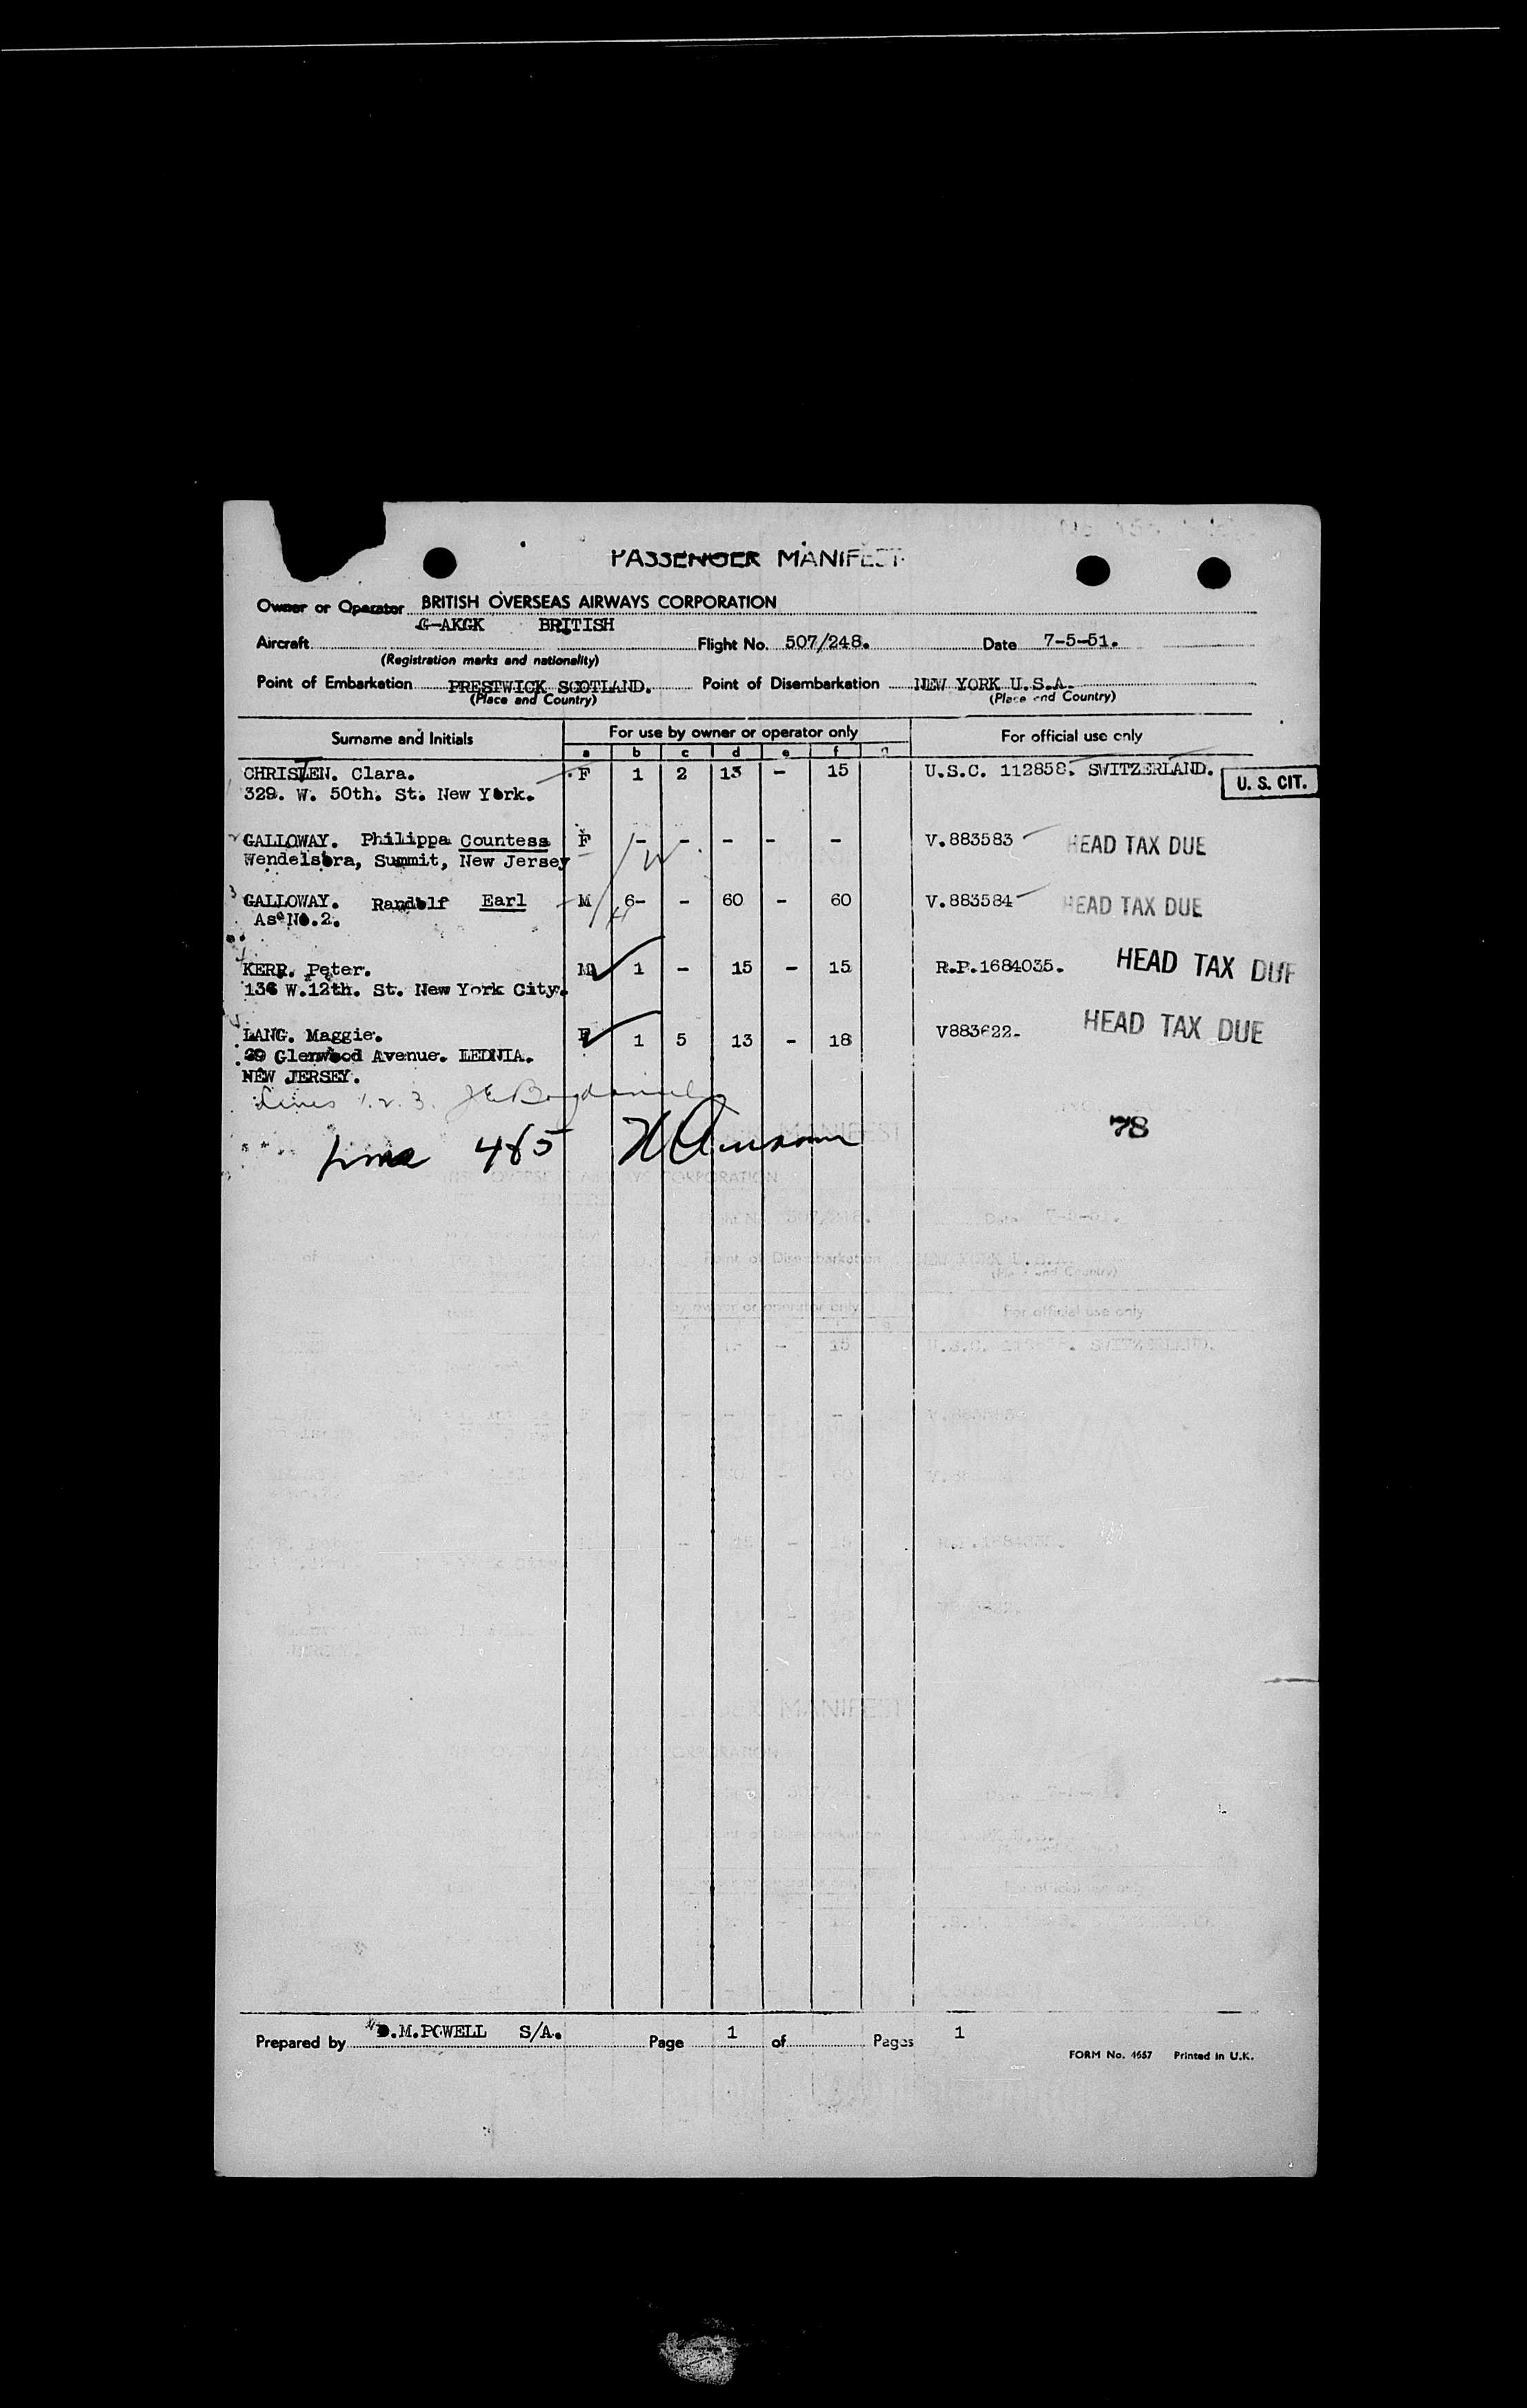 PASSENGER MANIFEST
Owner or Operator BRITISH OVERSEAS AIRWAYS CORPORATION
G-AKGK BRITISH
Aircraft Flight No. 507/248. Date 7-5-51.
(Registration marks and nationality)
Point of Embarkation PRESTWICK SCOTLAND. Point of Disembarkation NEW YORK U.S.A.
(Place and Country) (Place and Country)
Surname and Initials For use by owner or operator only For official use only
a b c d e f g
CHRISTEN. Clara. F 1 2 13 - 15 U.S.C. 112858. SWITZERLAND. U. S. CIT.
329. W. 50th. St. New York.
2 GALLOWAY. Philippa Countess F - - - - - V.883583 HEAD TAX DUE
Wendelsora, Summit, New Jersey
3 GALLOWAY. Randolf Earl M 6- - 60 - 60 V.883584 HEAD TAX DUE
As No.2.
4 KERR. Peter. M 1 - 15 - 15 R.P.1684035. HEAD TAX DUE
136 W.12th. St. New York City.
5 LANG. Maggie. F 1 5 13 - 18 V883622- HEAD TAX DUE
29 Glenwood Avenue. LEDNIA.
NEW JERSEY.
Lines 1. 2. 3.
78
Line 4&5
Prepared by D.M.POWELL S/A. Page 1 of Pages 1
FORM No. 4657 Printed in U.K.